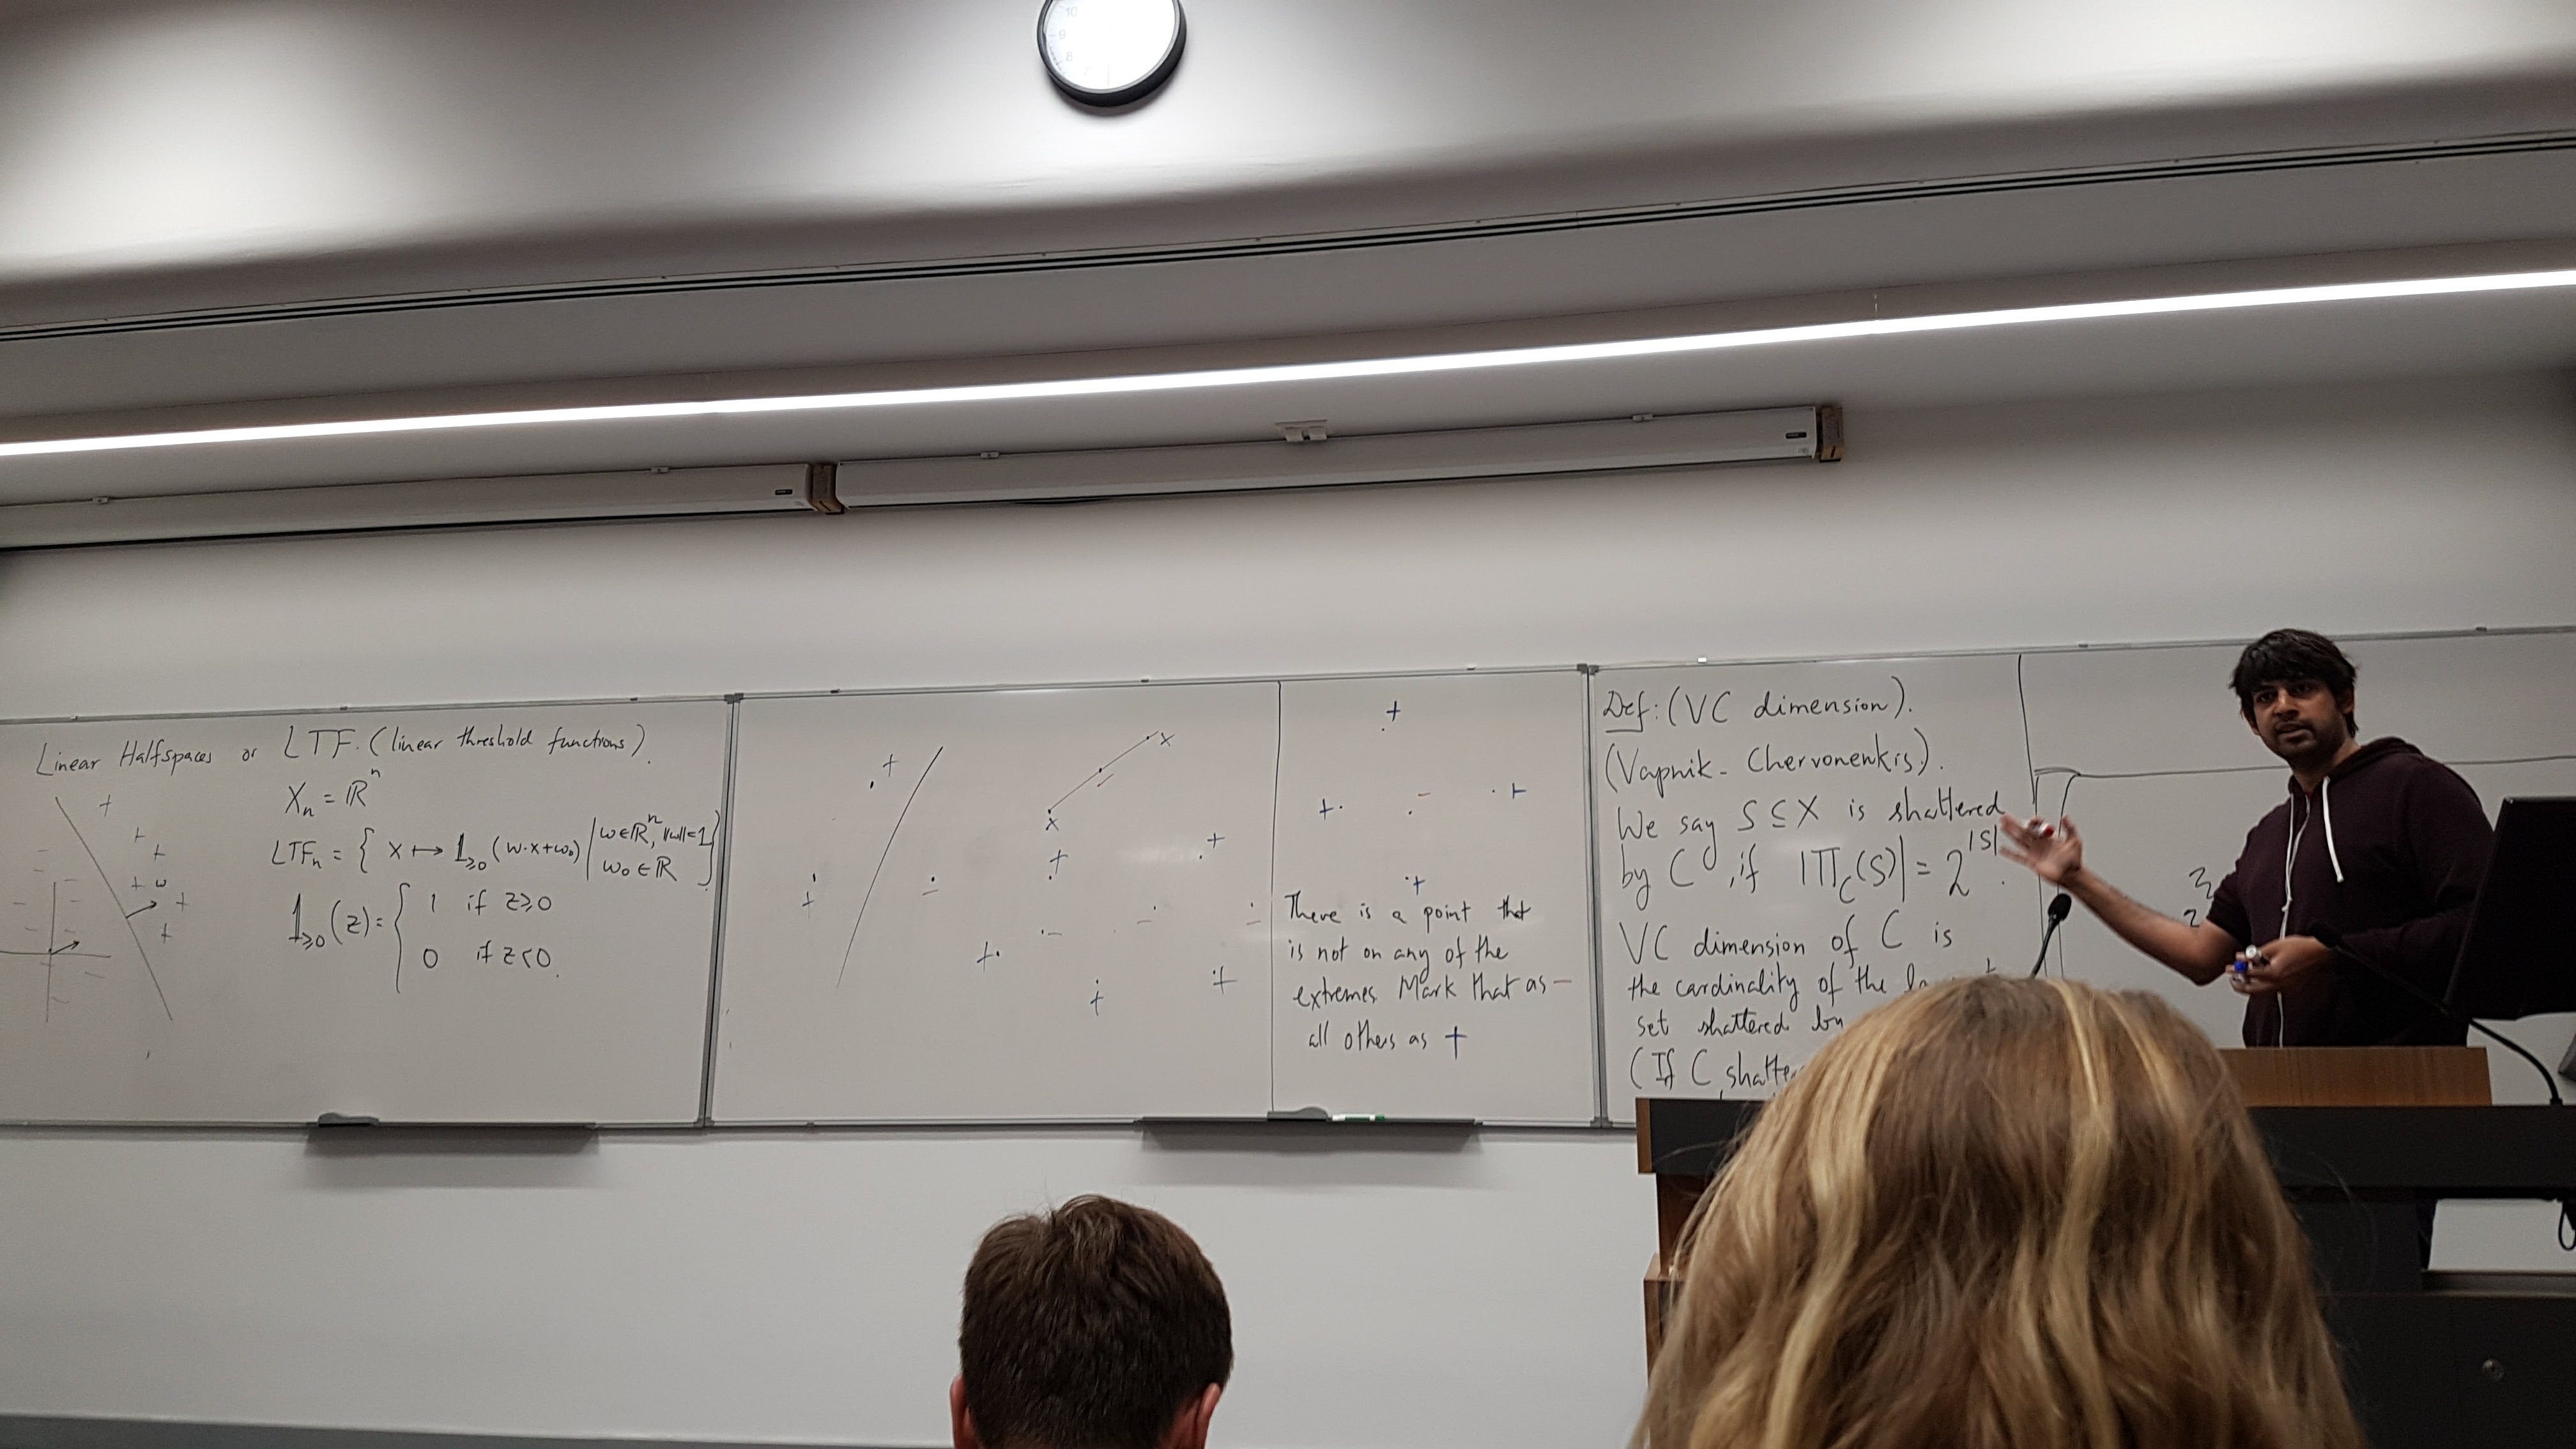 10
9
8
Linear Halfspaces or LTF. (linear threshold functions).
Xₙ = ℝⁿ
LTFₙ = { x ↦ 𝟙≥0 (w·x+w₀) | w∈ℝⁿ, ||w||=1
w₀ ∈ ℝ }
𝟙≥0 (z) = { 1 if z≥0
0 if z<0.
w
x
x
There is a point that
is not on any of the
extremes Mark that as −
all others as +
Def: (VC dimension).
(Vapnik - Chervonenkis).
We say S ⊆ X is shattered
by C, if |Π_C(S)| = 2^|S|.
VC dimension of C is
the cardinality of the
set shattered by
(If C